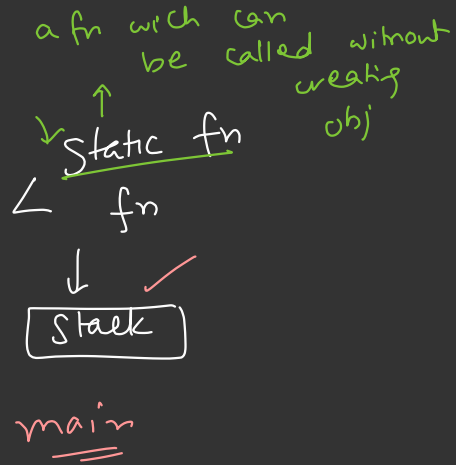 a fn wich can
be called without
creating
obj
static fn
fn
stack
main